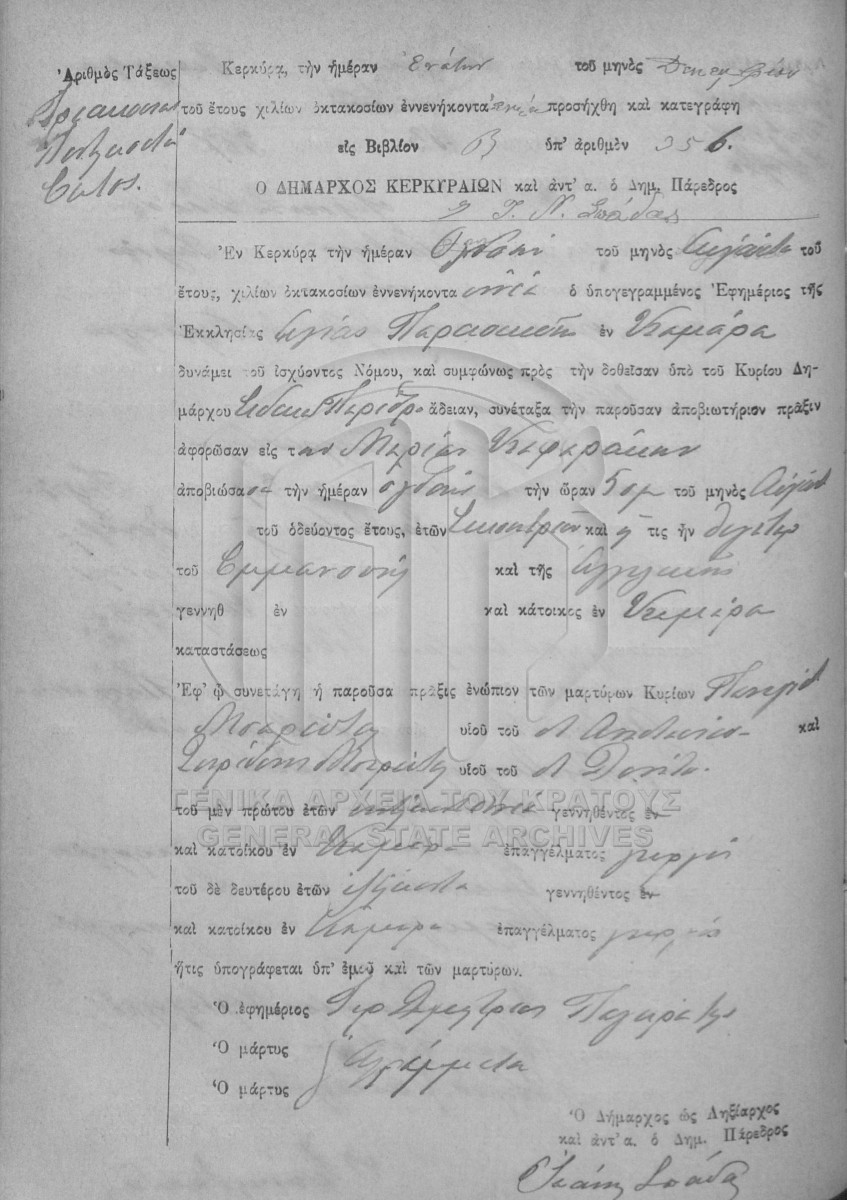 Ἀριθμὸς Τάξεως
Τριακόσια
Πεντήκοντα
Κερκύρᾳ, τὴν ἡμέραν Ἐνάτην τοῦ μηνὸς Δεκεμβρίου
τοῦ ἔτους χιλίων ὀκτακοσίων ἐννενήκοντα ἐννέα προσήχθη καὶ κατεγράφη
εἰς Βιβλίον Β ὑπ' ἀριθμὸν 356.
Ο ΔΗΜΑΡΧΟΣ ΚΕΡΚΥΡΑΙΩΝ καὶ ἀντ' α. ὁ Δημ. Πάρεδρος
Ν. Σπάδας
Ἐν Κερκύρᾳ τὴν ἡμέραν Ὀγδόη τοῦ μηνὸς Αὐγούστου τοῦ
ἔτους, χιλίων ὀκτακοσίων ἐννενήκοντα ἐννέα ὁ ὑπογεγραμμένος Ἐφημέριος τῆς
Ἐκκλησίας Ἁγίας Παρασκευῆς ἐν Καμάρα
δυνάμει τοῦ ἰσχύοντος Νόμου, καὶ συμφώνως πρὸς τὴν δοθεῖσαν ὑπὸ τοῦ Κυρίου Δη-
μάρχου ἄδειαν, συνέταξα τὴν παροῦσαν ἀποβιωτήριον πρᾶξιν
ἀφορῶσαν εἰς την Μαρίαν
ἀποβιώσασα τὴν ἡμέραν ὀγδόην τὴν ὥραν 5 πμ τοῦ μηνὸς Αὐγούστου
τοῦ ὁδεύοντος ἔτους, ἐτῶν εἰκοσιτριῶν καὶ ἥ τις ἦν θυγάτηρ
τοῦ Ἐμμανουὴλ καὶ τῆς Ἀγγελικῆς
γεννηθ ἐν καὶ κάτοικος ἐν Καμάρα
καταστάσεως
Ἐφ' ᾧ συνετάγη ἡ παροῦσα πρᾶξις ἐνώπιον τῶν μαρτύρων Κυρίων
υἱοῦ τοῦ Ἀντωνίου καὶ
Σπυρίδων υἱοῦ τοῦ
τοῦ μὲν πρώτου ἐτῶν γεννηθέντος ἐν
καὶ κατοίκου ἐν Καμάρα ἐπαγγέλματος γεωργοῦ
τοῦ δὲ δευτέρου ἐτῶν ἑξήκοντα γεννηθέντος ἐν
καὶ κατοίκου ἐν Καμάρα ἐπαγγέλματος γεωργοῦ
ἥτις ὑπογράφεται ὑπ' ἐμοῦ καὶ τῶν μαρτύρων.
Ὁ ἐφημέριος Ἱερ Δημήτριος
Ὁ μάρτυς
Ἀγράμματοι
Ὁ μάρτυς
Ὁ Δήμαρχος ὡς Ληξίαρχος
καὶ ἀντ' α. ὁ Δημ. Πάρεδρος
Σπάδας
ΓΕΝΙΚΑ ΑΡΧΕΙΑ ΤΟΥ ΚΡΑΤΟΥΣ
GENERAL STATE ARCHIVES